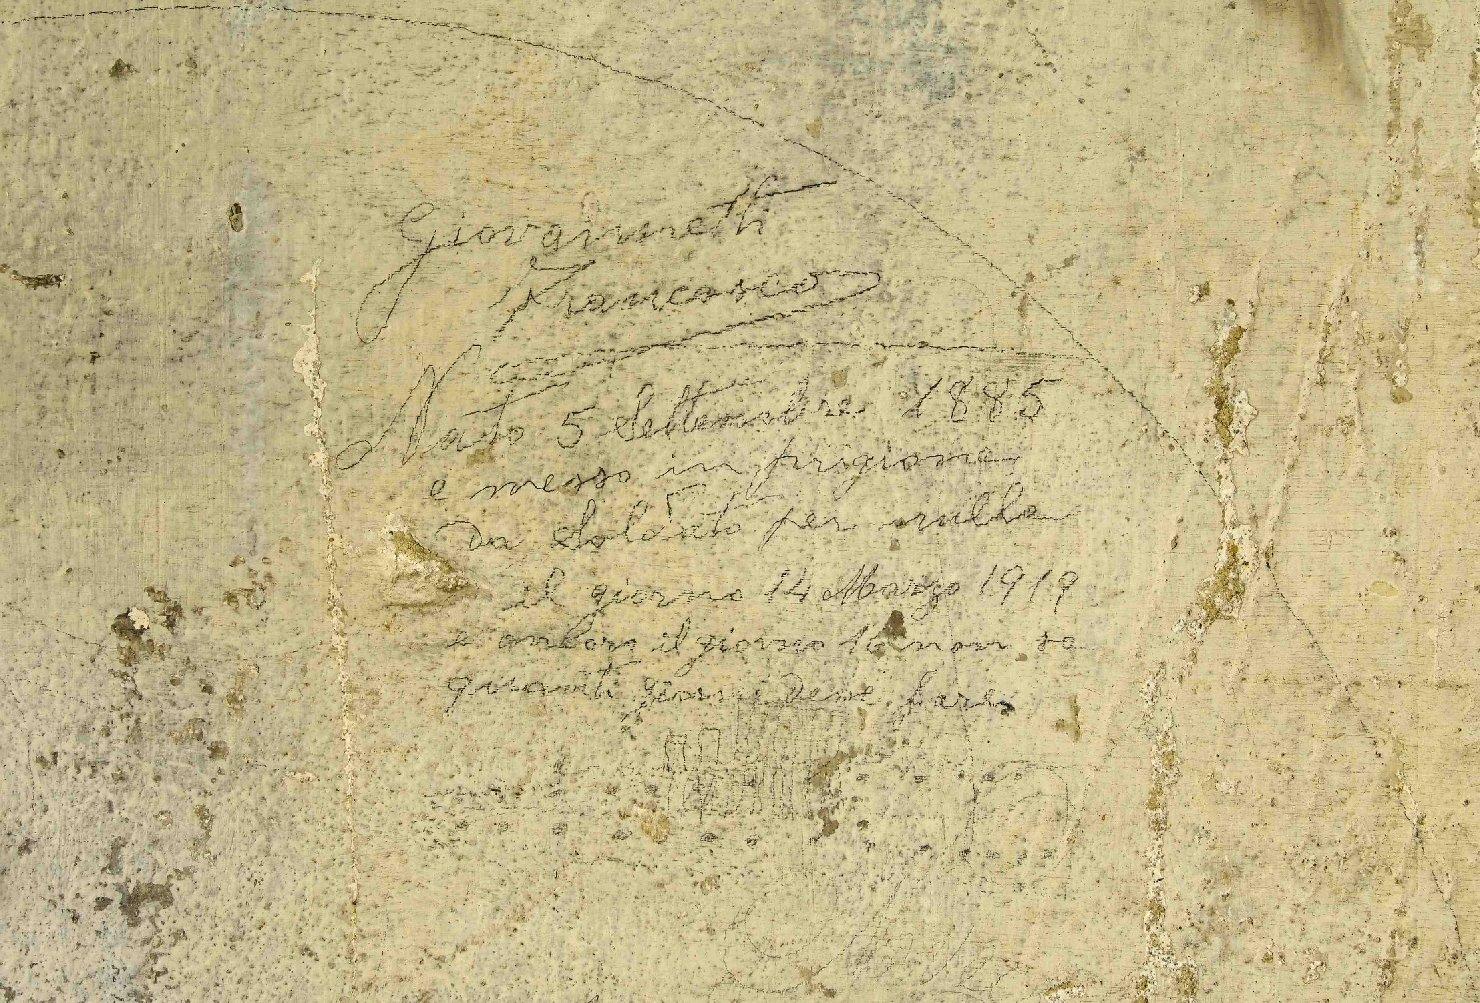 Giovannetti
Francesco
Nato 5 Settembre 1885
e messo in prigione
Da Soldato per nulla
il giorno 14 Marzo 1919
e ancora il giorno 16 non so
quanti giorni deve fare